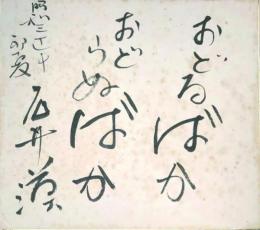 おどるばか
おどらぬばか
昭和三近年
初夏
石井漠